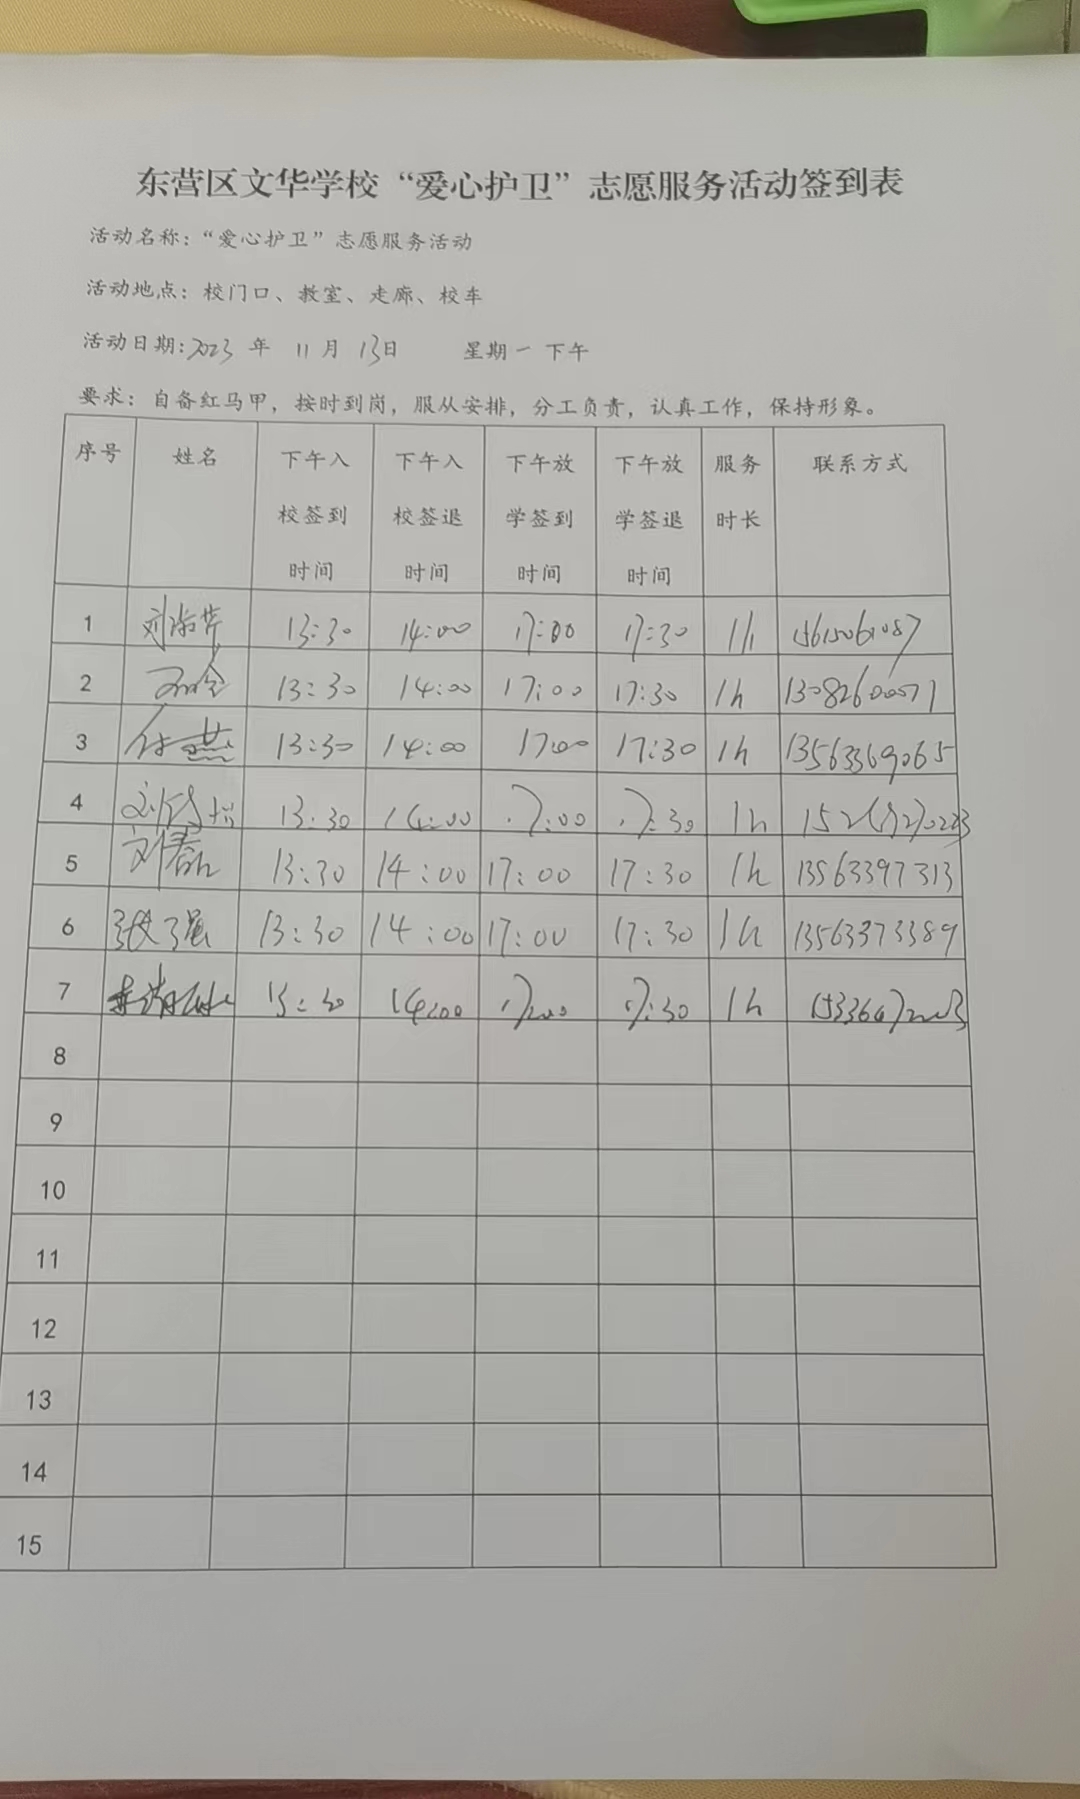 东营区文华学校“爱心护卫”志愿服务活动签到表
活动名称：“爱心护卫”志愿服务活动
活动地点：校门口、教室、走廊、校车
活动日期：2023 年 11 月 13日 星期一 下午
要求：自备红马甲，按时到岗，服从安排，分工负责，认真工作，保持形象。
序号 姓名 下午入校签到时间 下午入校签退时间 下午放学签到时间 下午放学签退时间 服务时长 联系方式
1 13:30 14:00 17:00 17:30 1h
2 13:30 14:00 17:00 17:30 1h
3 任燕 13:30 14:00 17:00 17:30 1h 13563369065
4 13:30 14:00 17:00 17:30 1h
5 13:30 14:00 17:00 17:30 1h 13563397313
6 13:30 14:00 17:00 17:30 1h 13563373389
7 13:30 14:00 17:00 17:30 1h
8
9
10
11
12
13
14
15